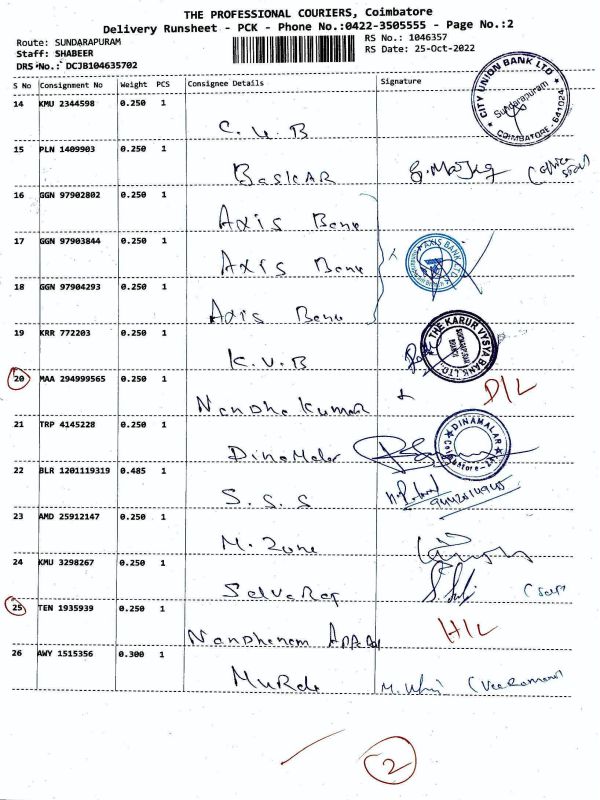 THE PROFESSIONAL COURIERS, Coimbatore
Delivery Runsheet - PCK - Phone No.:0422-3505555 - Page No.:2
Route: SUNDARAPURAM
Staff: SHABEER
DRS No.: DCJB104635702
RS No.: 1046357
RS Date: 25-Oct-2022
S No Consignment No Weight PCS Consignee Details Signature
CITY UNION BANK LTD
Sundarapuram
COIMBATORE - 641024
14 KMU 2344598 0.250 1
C.U.B
15 PLN 1409903 0.250 1
BASKAR
16 GGN 97902802 0.250 1
Axis Bank
17 GGN 97903844 0.250 1
Axis Bank
AXIS BANK LTD
18 GGN 97904293 0.250 1
Axis Bank
19 KRR 772203 0.250 1
K.V.B
THE KARUR VYSYA BANK LTD.
SUNDARAPURAM
BRANCH
20 MAA 294999565 0.250 1
Nandha Kumar
D/L
21 TRP 4145228 0.250 1
DinaMalar
DINAMALAR
22 BLR 1201119319 0.485 1
S.S.S
23 AMD 25912147 0.250 1
M. Zone
24 KMU 3298267 0.250 1
SelvaRaj
25 TEN 1935939 0.250 1
H/L
26 AWY 1515356 0.300 1
2